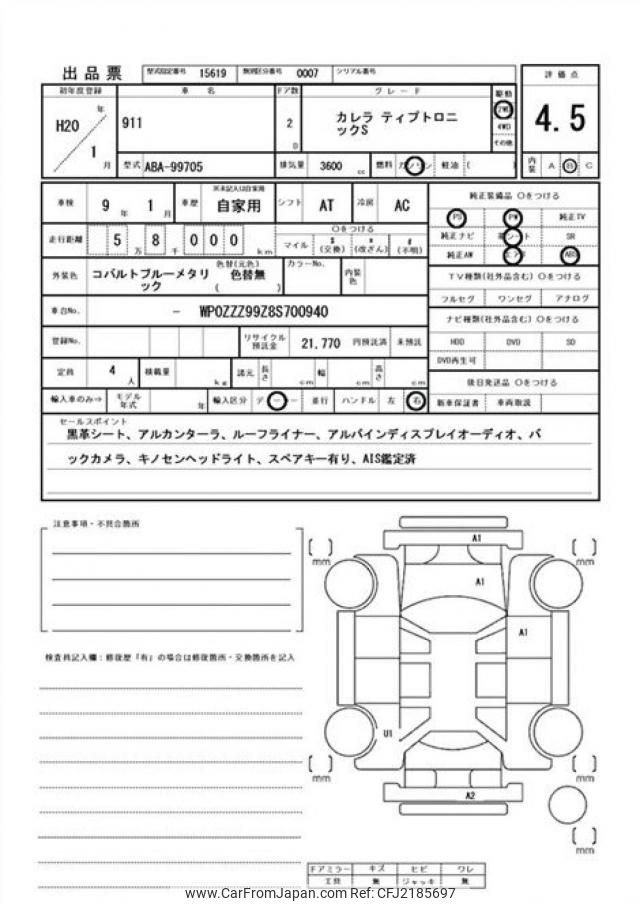 出品票 型式指定番号 15619 類別区分番号 0007 シリアル番号
初年度登録 車 名 ドア数 グレード 駆動 評価点
H20 年 911 2 D カレラ ティプトロニ 2WD 4.5
ックS 4WD
1 月 その他
型式 ABA-99705 排気量 3600 cc 燃料 ガソリン 軽油 ( ) 内装 A B C
車検 9 年 1 月 車歴 ※未記入は自家用 自家用 シフト AT 冷房 AC 純正装備品 Oをつける
PS PW 純正TV
走行距離 5 万 8 千 0 0 0 km Oをつける 純正ナビ 革シート SR
マイル $ (交換) * (改ざん) # (不明) 純正AW エアB ABS
外装色 コバルトブルーメタリ 色替(元色) カラーNo. 内装色 TV種類(社外品含む) Oをつける
ック ( 色替無 ) フルセグ ワンセグ アナログ
車台No. - WP0ZZZ99Z8S700940 ナビ種類(社外品含む) Oをつける
登録No. リサイクル預託金 21,770 円預託済 未預託 HDD DVD SD
DVD再生可
定員 4 人 積載量 kg 諸元 長さ cm 幅 cm 高さ cm 後日発送品 Oをつける
輸入車のみ⇒ モデル年式 年 輸入区分 ディーラー 並行 ハンドル 左 右 新車保証書 車両取説
セールスポイント
黒革シート、アルカンターラ、ルーフライナー、アルパインディスプレイオーディオ、バ
ックカメラ、キノセンヘッドライト、スペアキー有り、AIS鑑定済
注意事項・不具合箇所
A1
[ ] mm [ ] mm
A1
A1
検査員記入欄：修復歴「有」の場合は修復箇所・交換箇所を記入
U1
[ ] mm [ ] mm
A2
[ ] mm
ドアミラー キズ ヒビ ワレ
工具 無 ジャッキ 無
www.CarFromJapan.com Ref: CFJ2185697